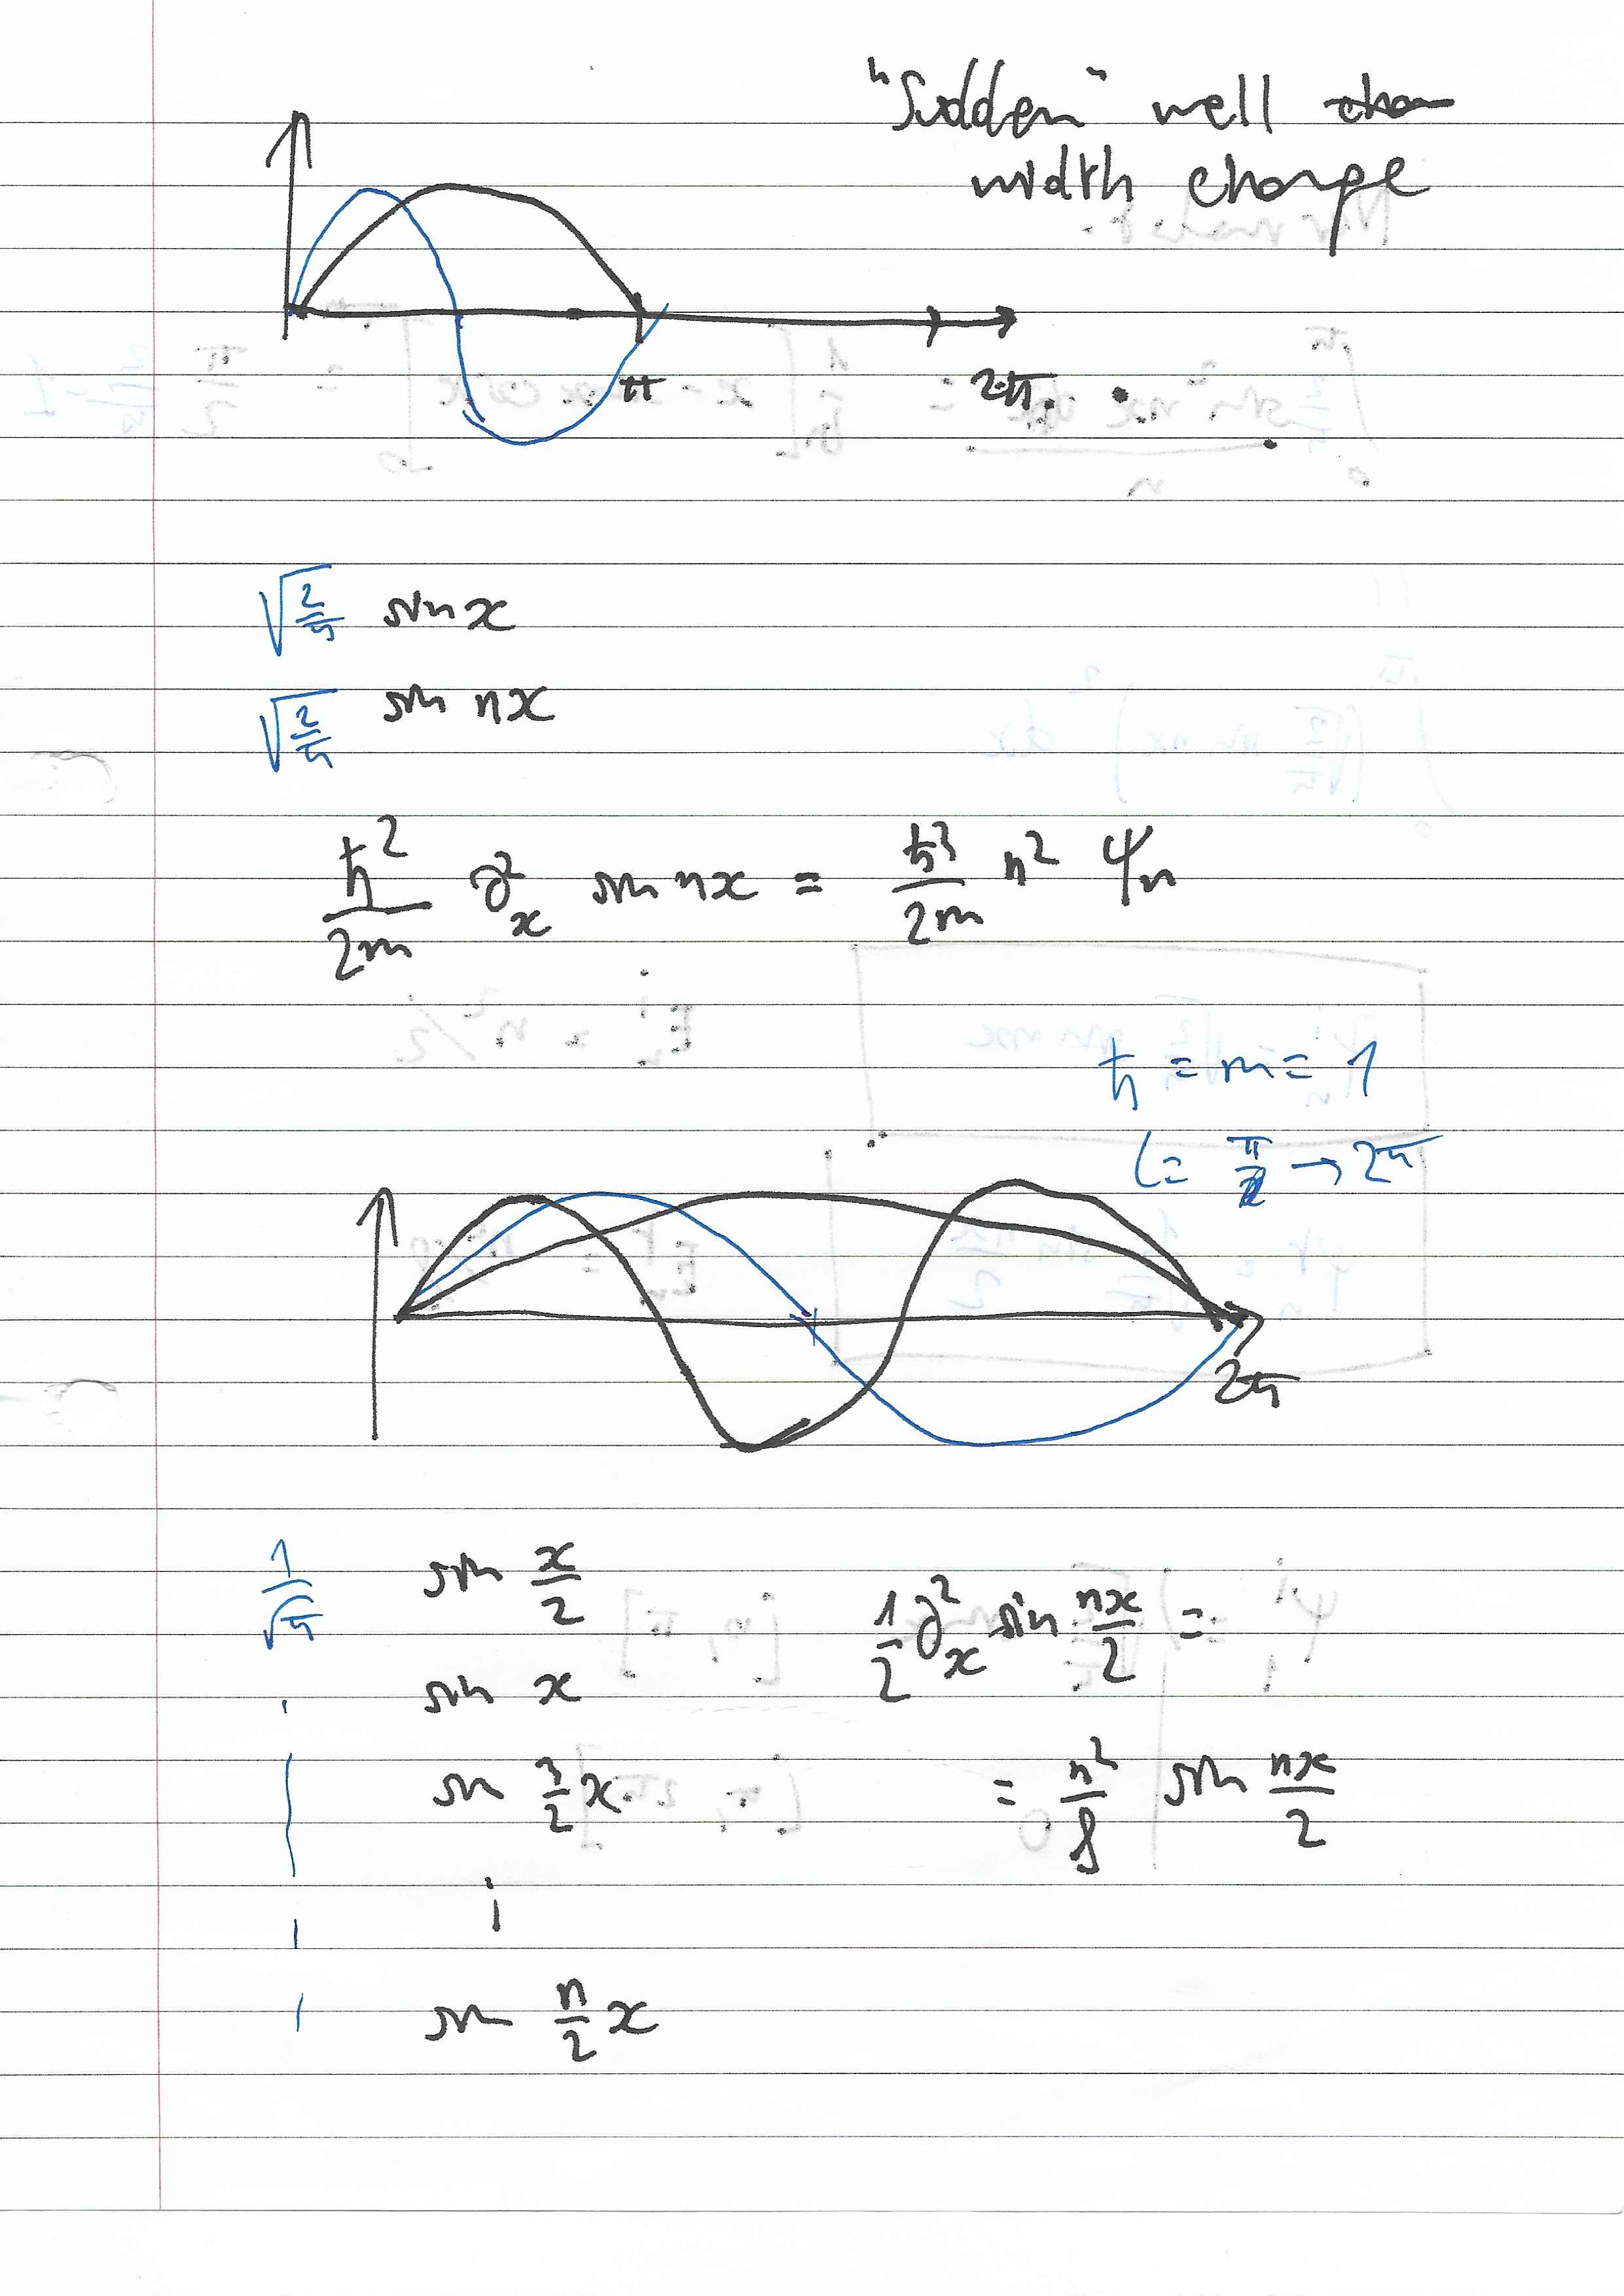 "Sudden" well cha
width change
π 2π
√(2/π) sin x
√(2/π) sin nx
ħ²/2m ∂²ₓ sin nx = ħ²/2m n² ψₙ
ħ = m = 1
L = π → 2π
2π
1/√π sin x/2
sin x
sin 3/2 x
sin n/2 x
1/2 ∂²ₓ sin nx/2 =
= n²/8 sin nx/2